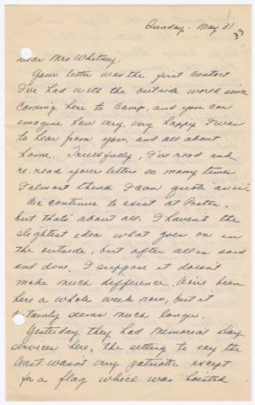 Sunday - May 31
33
Dear Mrs Whitney:
Your letter was the first contact
I've had with the outside world since
coming here to camp, and you can
imagine how very, very happy I was
to hear from you, and all about
home. Truthfully, I've read and
re-read your letters so many times
I almost think I can quote
We continue to exist at
but that's about all. I haven't the
slightest idea what goes on in
the outside, but after all is said
and done, I suppose it doesn't
make much difference. We've been
here a whole week now, but it
tainly seems much longer.
Yesterday they had Memorial Day
services here, the setting to say the
least wasn't very patriotic except
for a flag which was hoisted